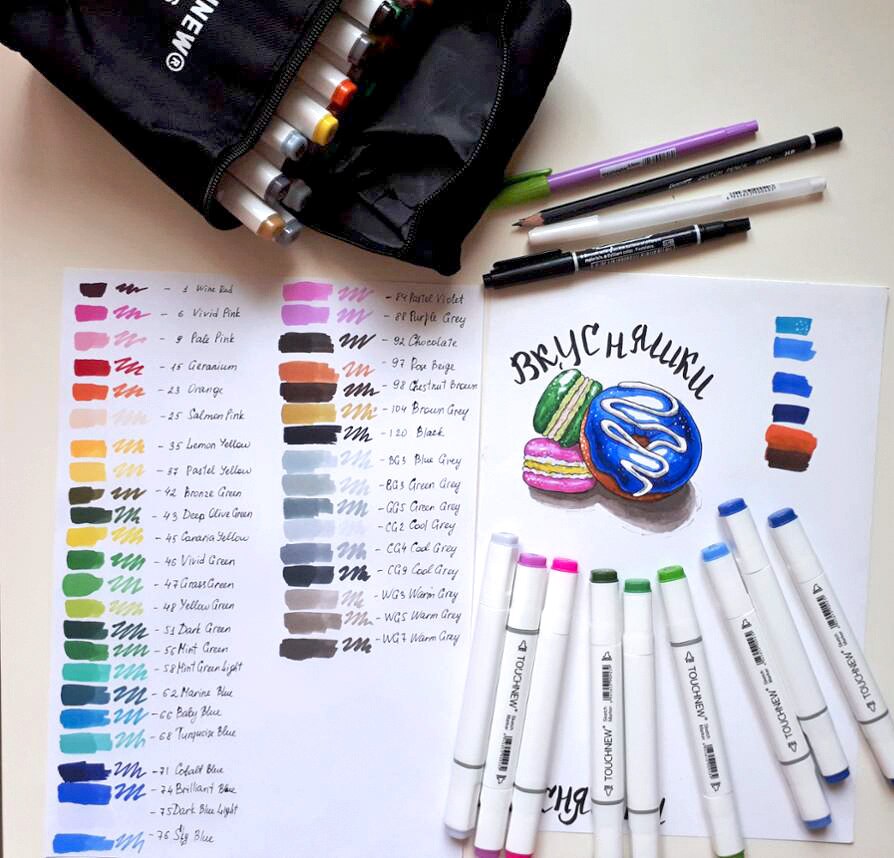 HNEW®
1 Wine Red
6 Vivid Pink
9 Pale Pink
15 Geranium
23 Orange
25 Salmon Pink
- 35 Lemon Yellow
- 37 Pastel Yellow
- 42 Bronze Green
- 43 Deep Olive Green
- 45 Canaria Yellow
- 46 Vivid Green
- 47 Grass Green
- 48 Yellow Green
- 51 Dark Green
- 56 Mint Green
- 58 Mint Green Light
- 62 Marine Blue
- 66 Baby Blue
- 68 Turquoise Blue
- 71 Cobalt Blue
- 74 Brilliant Blue
- 75 Dark Blue Light
- 76 Sky Blue
- 84 Pastel Violet
- 88 Purple Grey
- 92 Chocolate
- 97 Rose Beige
- 98 Chestnut Brown
- 104 Brown Grey
- 120 Black
- BG3 Blue Grey
- BG3 Green Grey
- GG5 Green Grey
- CG2 Cool Grey
- CG4 Cool Grey
- CG9 Cool Grey
- WG3 Warm Grey
- WG5 Warm Grey
- WG7 Warm Grey
ВКУСНЯШКИ
TOUCHNEW® Sketch Marker
TOUCHNEW® Sketch Marker
TOUCHNEW® Sketch Marker
TOUCHNEW® Sketch Marker
TOUCHNEW® Sketch Marker